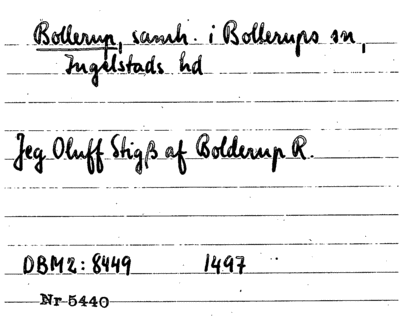 Bollerup, samh. i Bollerups sn,
Ingelstads hd
Jeg Oluff Stigß af Bolderup R.
DBM2: 8449 1497
Nr 5440